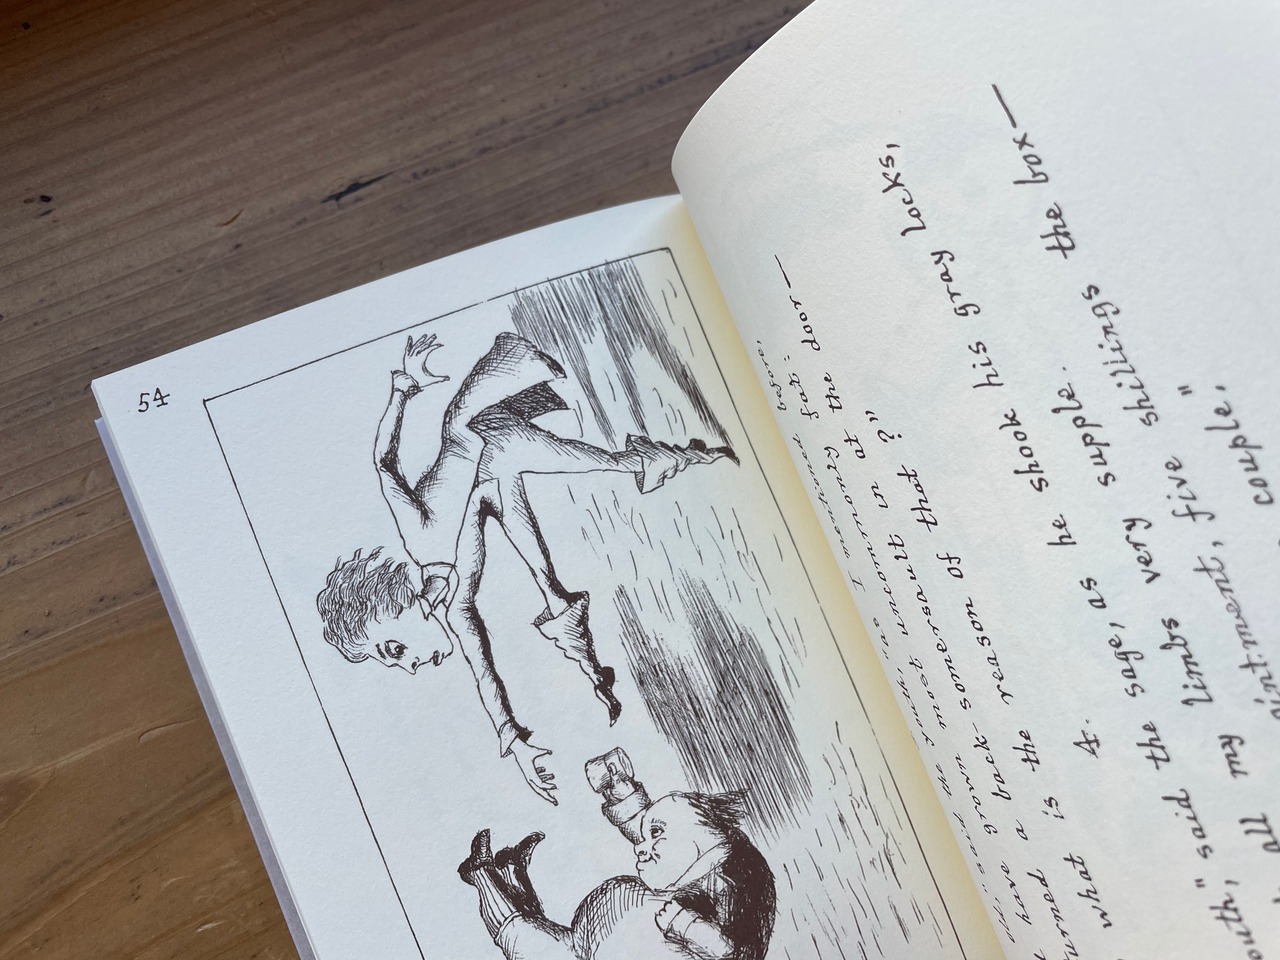 54
old," said the youth, "as I mentioned before,
have grown most uncommonly fat:
turned a back-somersault in at the door—
what is the reason of that?"
4.
said the sage, as he shook his gray locks,
all my limbs very supple.
ointment, five shillings the box—
couple."